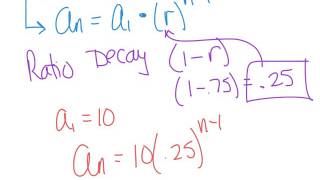 ↳ aₙ = a₁ · (r)ⁿ⁻¹
Ratio Decay (1-r)
(1-.75) = .25
a₁ = 10
aₙ = 10(.25)ⁿ⁻¹